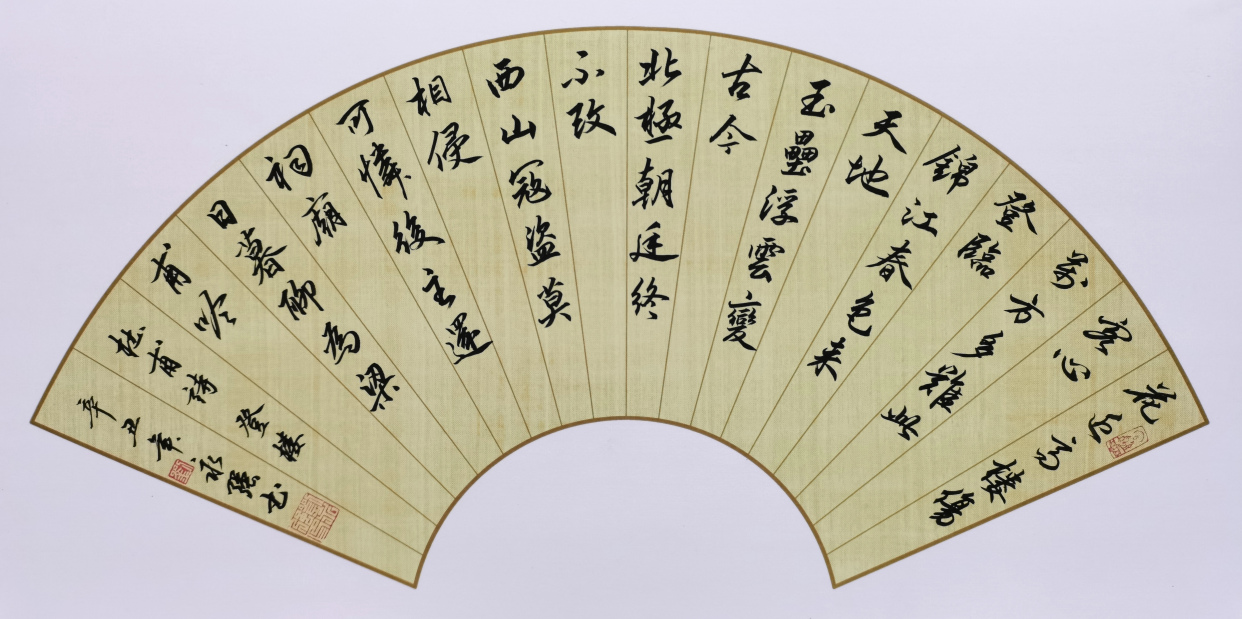 花近高樓傷
客心
萬方多難此
登臨
錦江春色来
天地
玉壘浮雲變
古今
北極朝廷終
不改
西山寇盜莫
相侵
可憐後主還
祠廟
日暮聊為梁
甫吟
杜甫詩 登樓
辛丑年 永强书